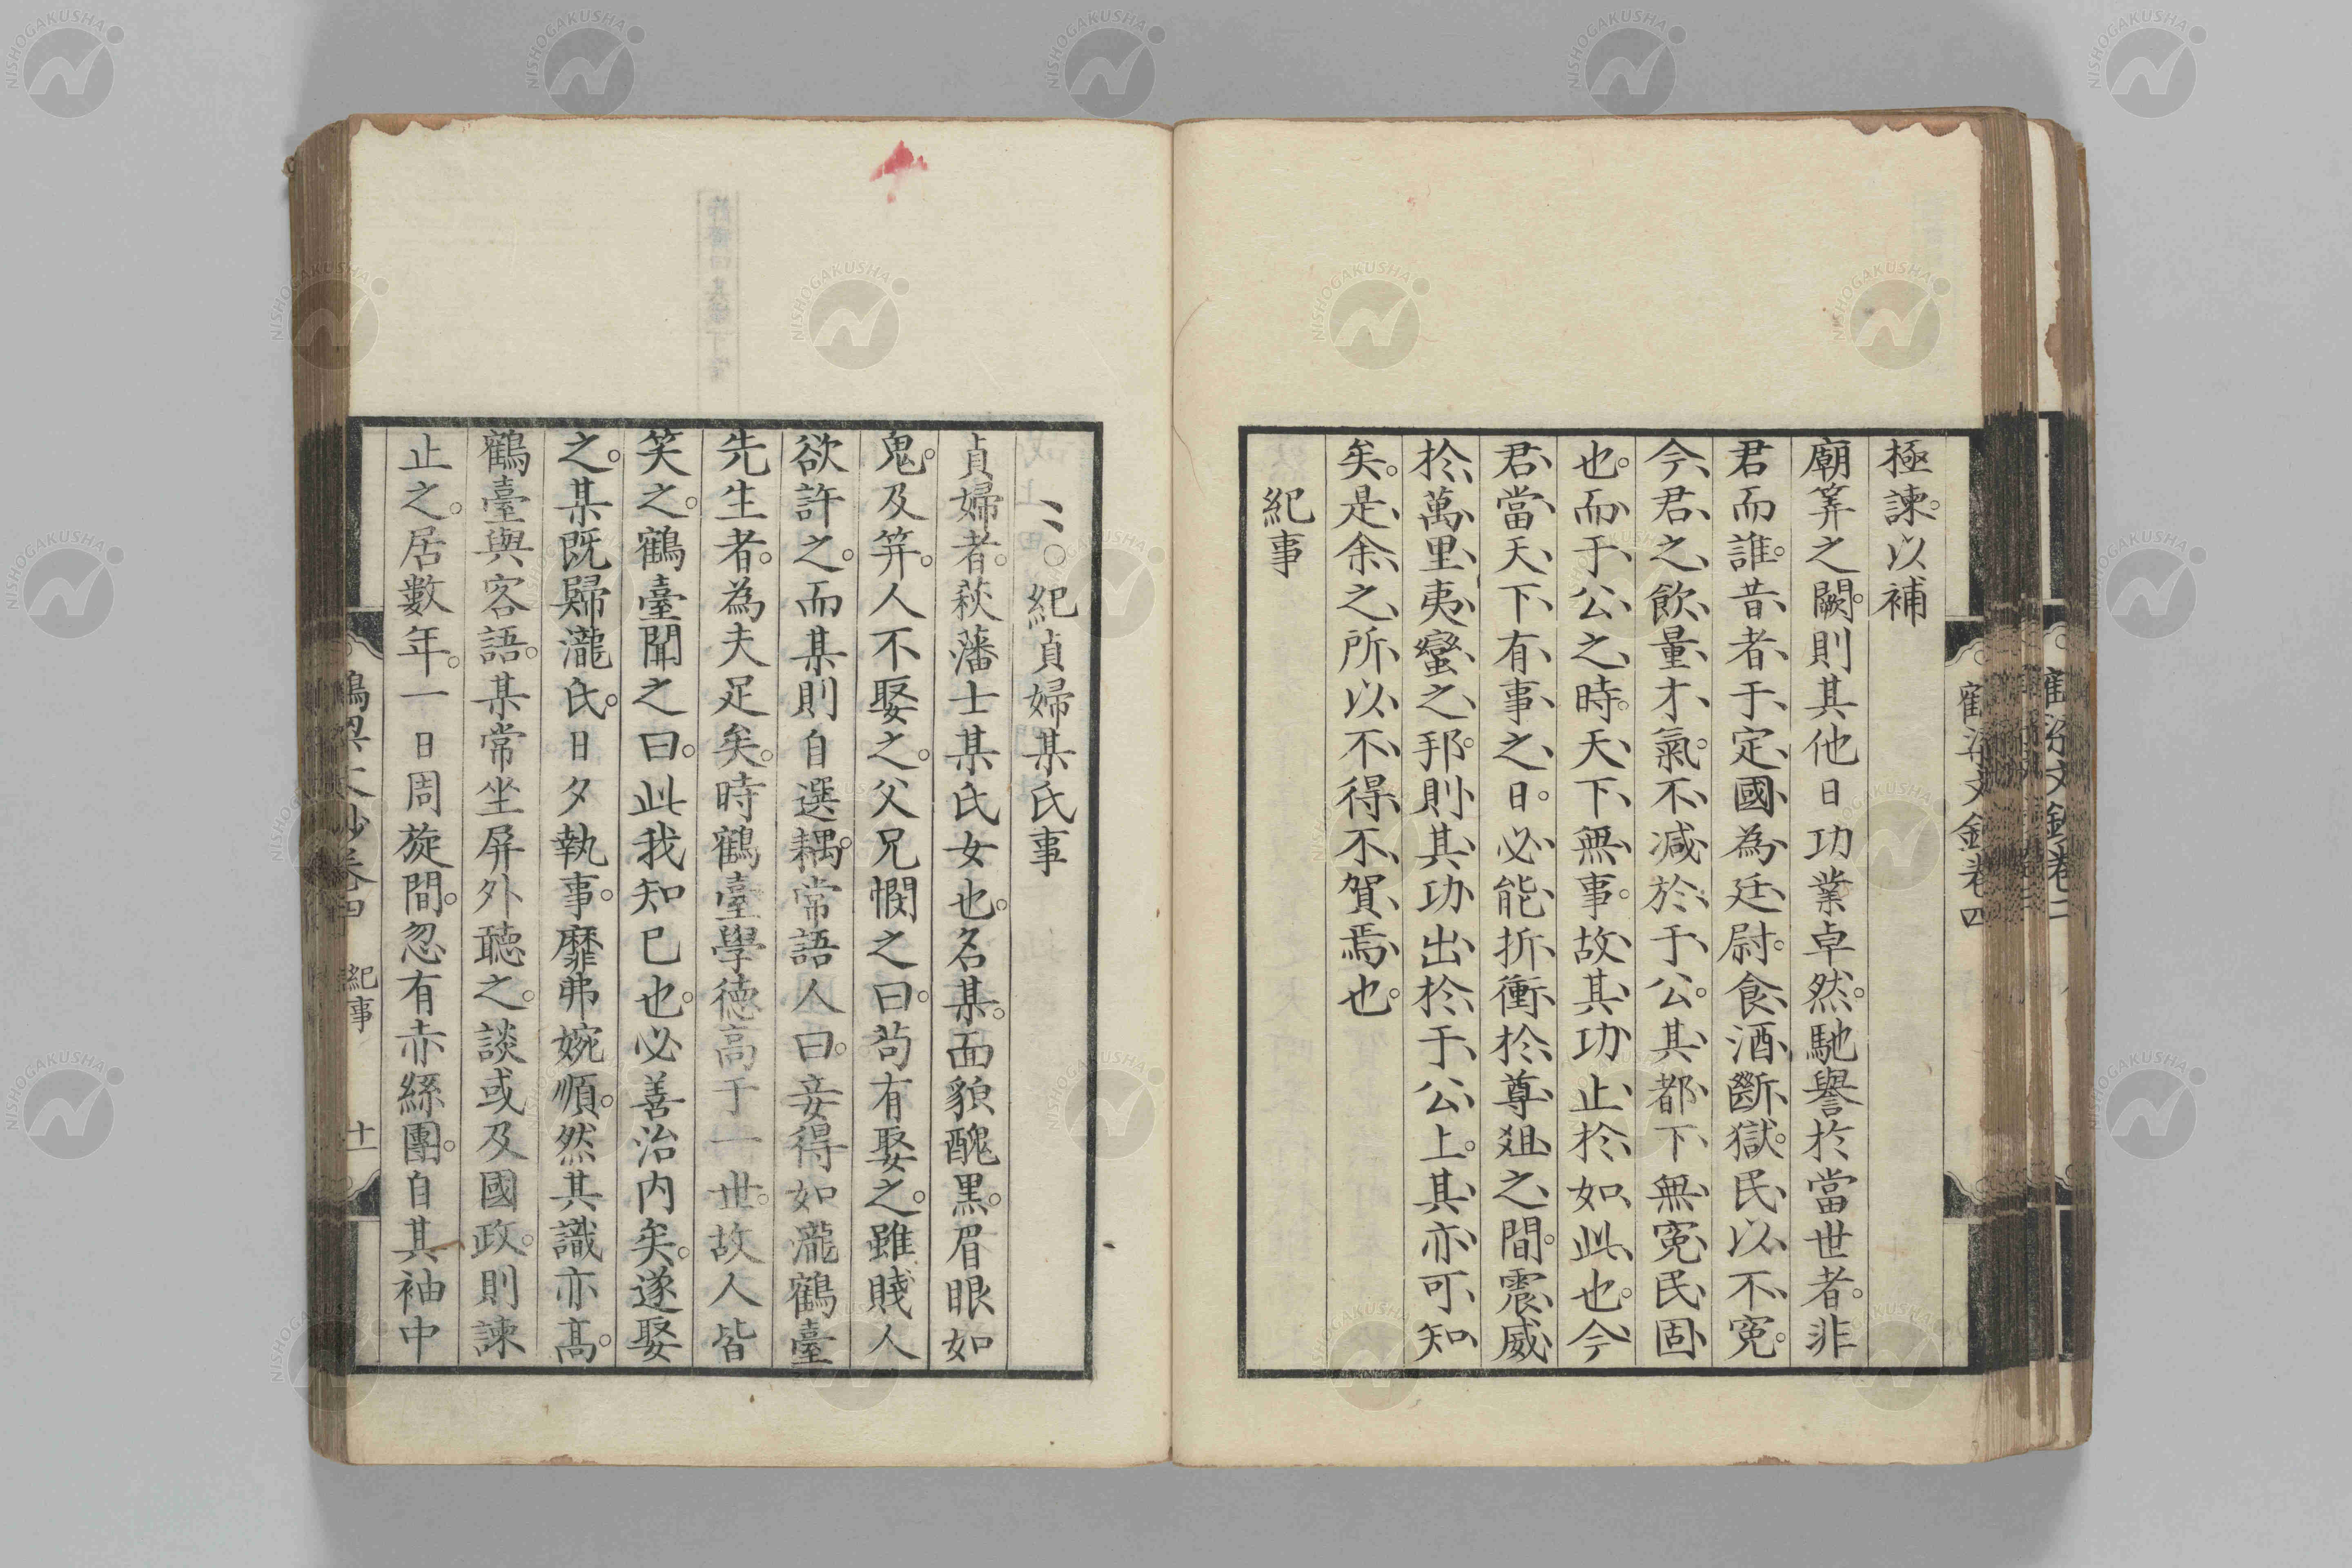 極諫。以補
廟筭之闕。則其他日功業卓然。馳譽於當世者。非
君而誰。昔者于定國為廷尉。食酒斷獄。民以不寃。
今君之飲量才氣。不減於于公。其都下無寃民固
也。而于公之時。天下無事。故其功止於如此也。今
君當天下有事之日。必能折衝於尊爼之間。震威
於萬里夷蠻之邦。則其功出於于公上。其亦可知
矣。是余之所以不得不賀焉也。
紀事
○紀貞婦某氏事
貞婦者。萩藩士某氏女也。名某。面貌醜黒。眉眼如
鬼。及笄。人不娶之。父兄憫之曰。苟有娶之。雖賤人
欲許之。而某則自選耦。常語人曰。妾得如瀧鶴臺
先生者。為夫足矣。時鶴臺學徳高于一世。故人皆
笑之。鶴臺聞之曰。此我知己也。必善治内矣。遂娶
之。某既歸瀧氏。日夕執事。靡弗婉順。然其識亦高。
鶴臺與客語。某常坐屏外聽之。談或及國政。則諫
止之。居數年。一日周旋間。忽有赤絲團。自其袖中
紀事 十一
NISHOGAKUSHA